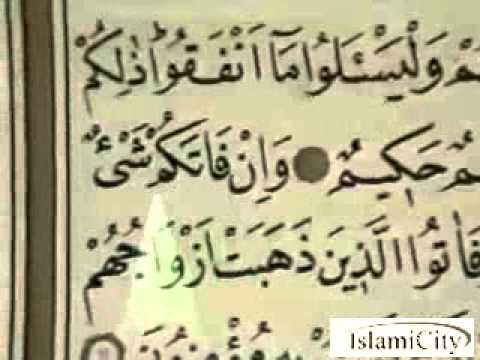 وَلْيَسْـَٔلُوا مَٓا اَنْفَقُواۜ ذٰلِكُمْ
حَكٖيمٌ وَاِنْ فَاتَكُمْ شَيْءٌ
فَاٰتُوا الَّذٖينَ ذَهَبَتْ اَزْوَاجُهُمْ
IslamiCity